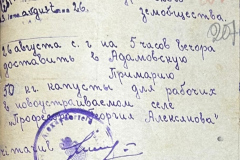 августа 26. земобщества.
207
26 августа с. г на 5 часов вечора
доставить в Адамовскую
Примарию
50 кг. капусты для рабочих
в новоустраиваемом селе
"Професс Георгия Алексянова"